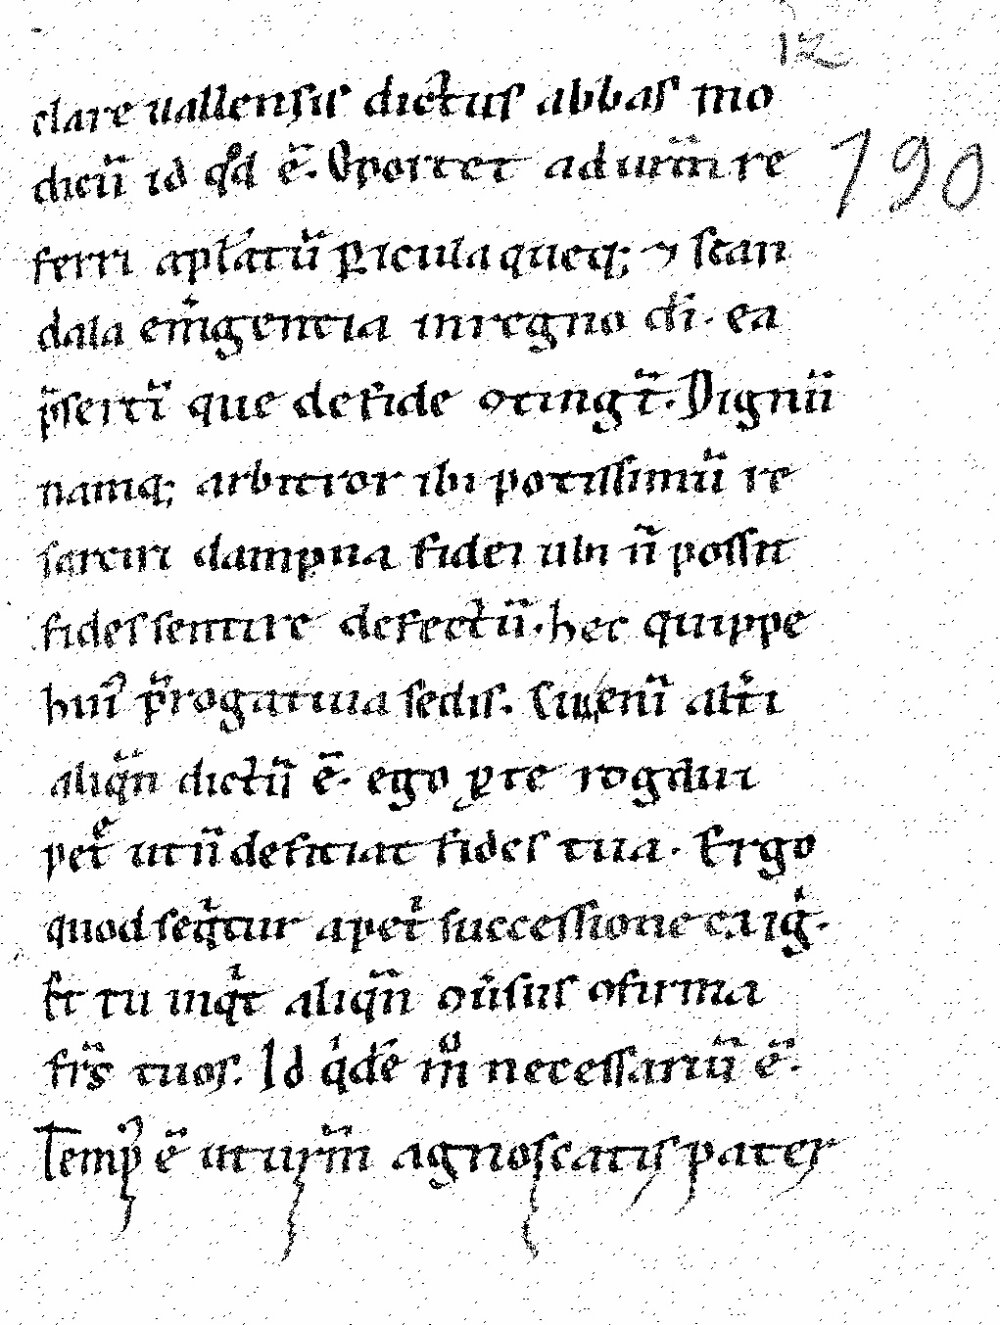 12
clare uallensis dictus abbas mo
dicū id qd ē. Oportet ad urm̄ re
790
ferri apl̄atū ꝑicula queq; ⁊ scan
dala em̄gentia in regno dī. ea
p̄sertī que de fide ↄtingt̄. Dignū
namq; arbitror ibi potissimū re
sarciri dampna fidei ubi n̄ possit
fides sentire defectū. hec quippe
huiꝰ p̄rogatiua sedis. Cui enī alt̄i
aliqn̄ dictū ē. ego ꝓ te rogaui
petͤ ut n̄ deficiat fides tua. Ergo
quod seqͥtur a petͥ successione exigͥ.
Et tu inqͥt aliqn̄ ↄūsus ↄfirma
fr̄s tuos. Id qͥdē mͦ necessariū ē.
Tempꝰ ē ut urm̄ agnoscatis pater